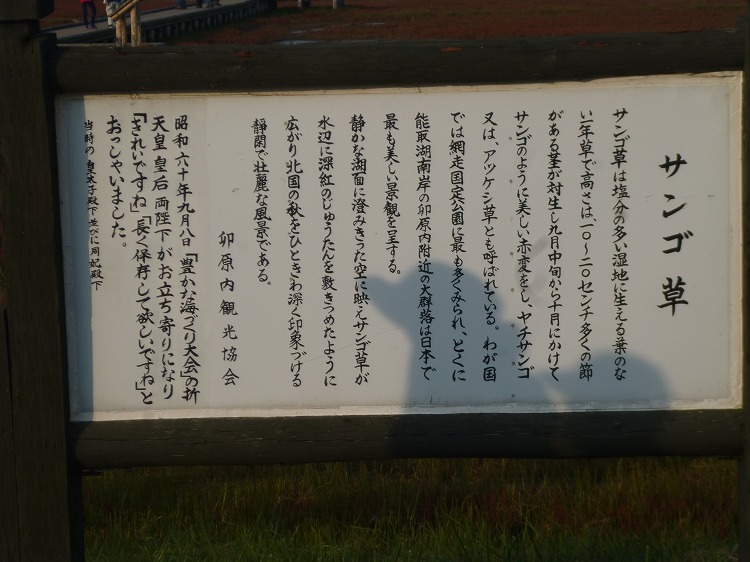 サンゴ草
サンゴ草は塩分の多い湿地に生える葉のな
い一年草で高さは一〇～二〇センチ多くの節
がある茎が対生し九月中旬から十月にかけて
サンゴのように美しい赤変をし、ヤチサンゴ
又は、アツケシ草とも呼ばれている。わが国
では網走国定公園に最も多くみられ、とくに
能取湖南岸の卯原内附近の大群落は日本で
最も美しい景観を呈する。
静かな湖面に澄みきった空に映えサンゴ草が
水辺に深紅のじゅうたんを敷きつめたように
広がり北国の秋をひときわ深く印象づける
静閑で壮麗な風景である。
卯原内観光協会
昭和六十年九月八日「豊かな海づくり大会」の折
天皇皇后両陛下がお立ち寄りになり
「きれいですね」「長く保存して欲しいですね」と
おっしゃいました。
当時の皇太子殿下並びに同妃殿下